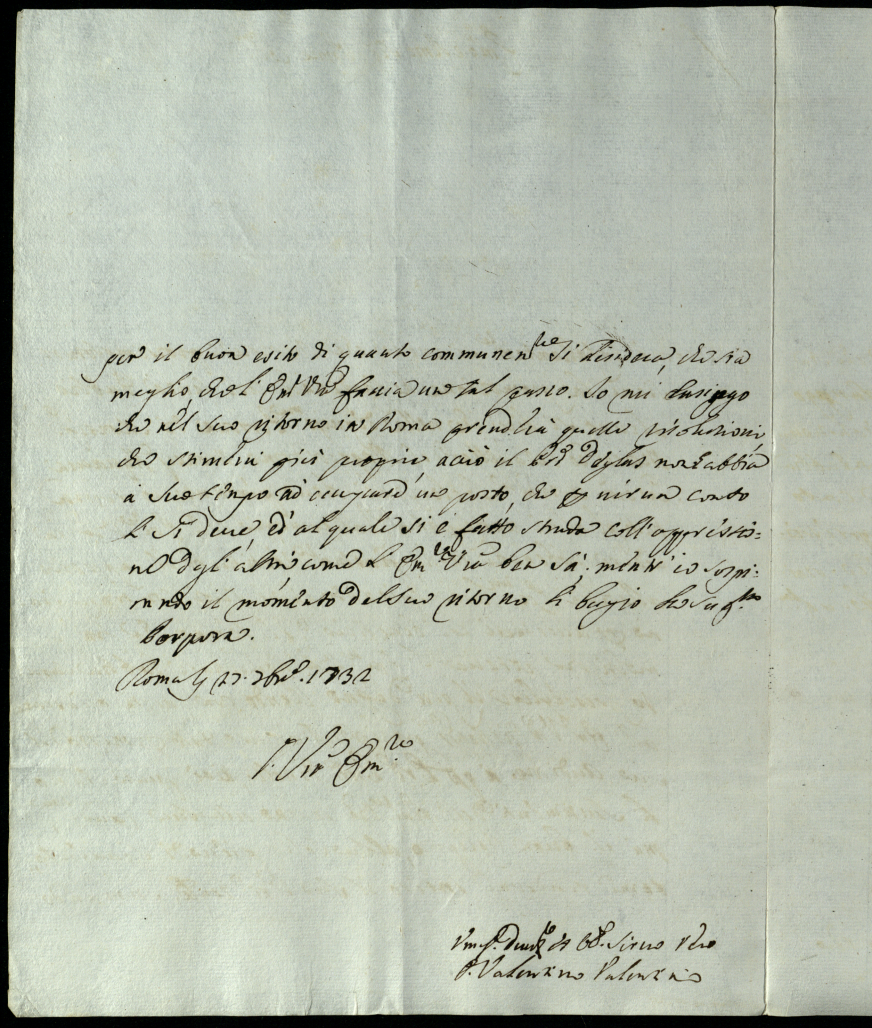 per il buon esito di quanto communem.te si desidera, che sia
meglio, che l' Em: V.ra faccia un tal passo. Io mi lusingo
che nel suo ritorno in Roma prenderà quelle risoluzioni,
che stimerà più proprie acciò il non abbia
a suo tempo ad occupare un posto, che p niun conto
li si deve, ed al quale si è fatto strada coll'oppressio=
ne degl'altri come l' Em.za V.ra ben sà: mentr'io sospi=
rando il momento del suo ritorno le bagio la sag.ta
Porpora.
Roma li 27. 1732
V.ra Em.za
Um.o Servo Vero
Valentino Valentini